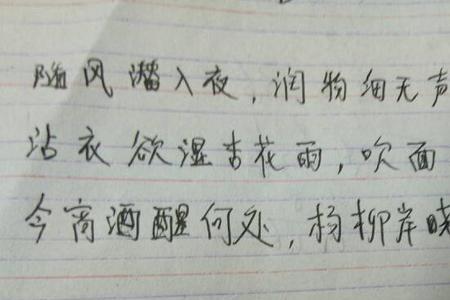 随风潜入夜，润物细无声
沾衣欲湿杏花雨，吹面
今宵酒醒何处，杨柳岸晓